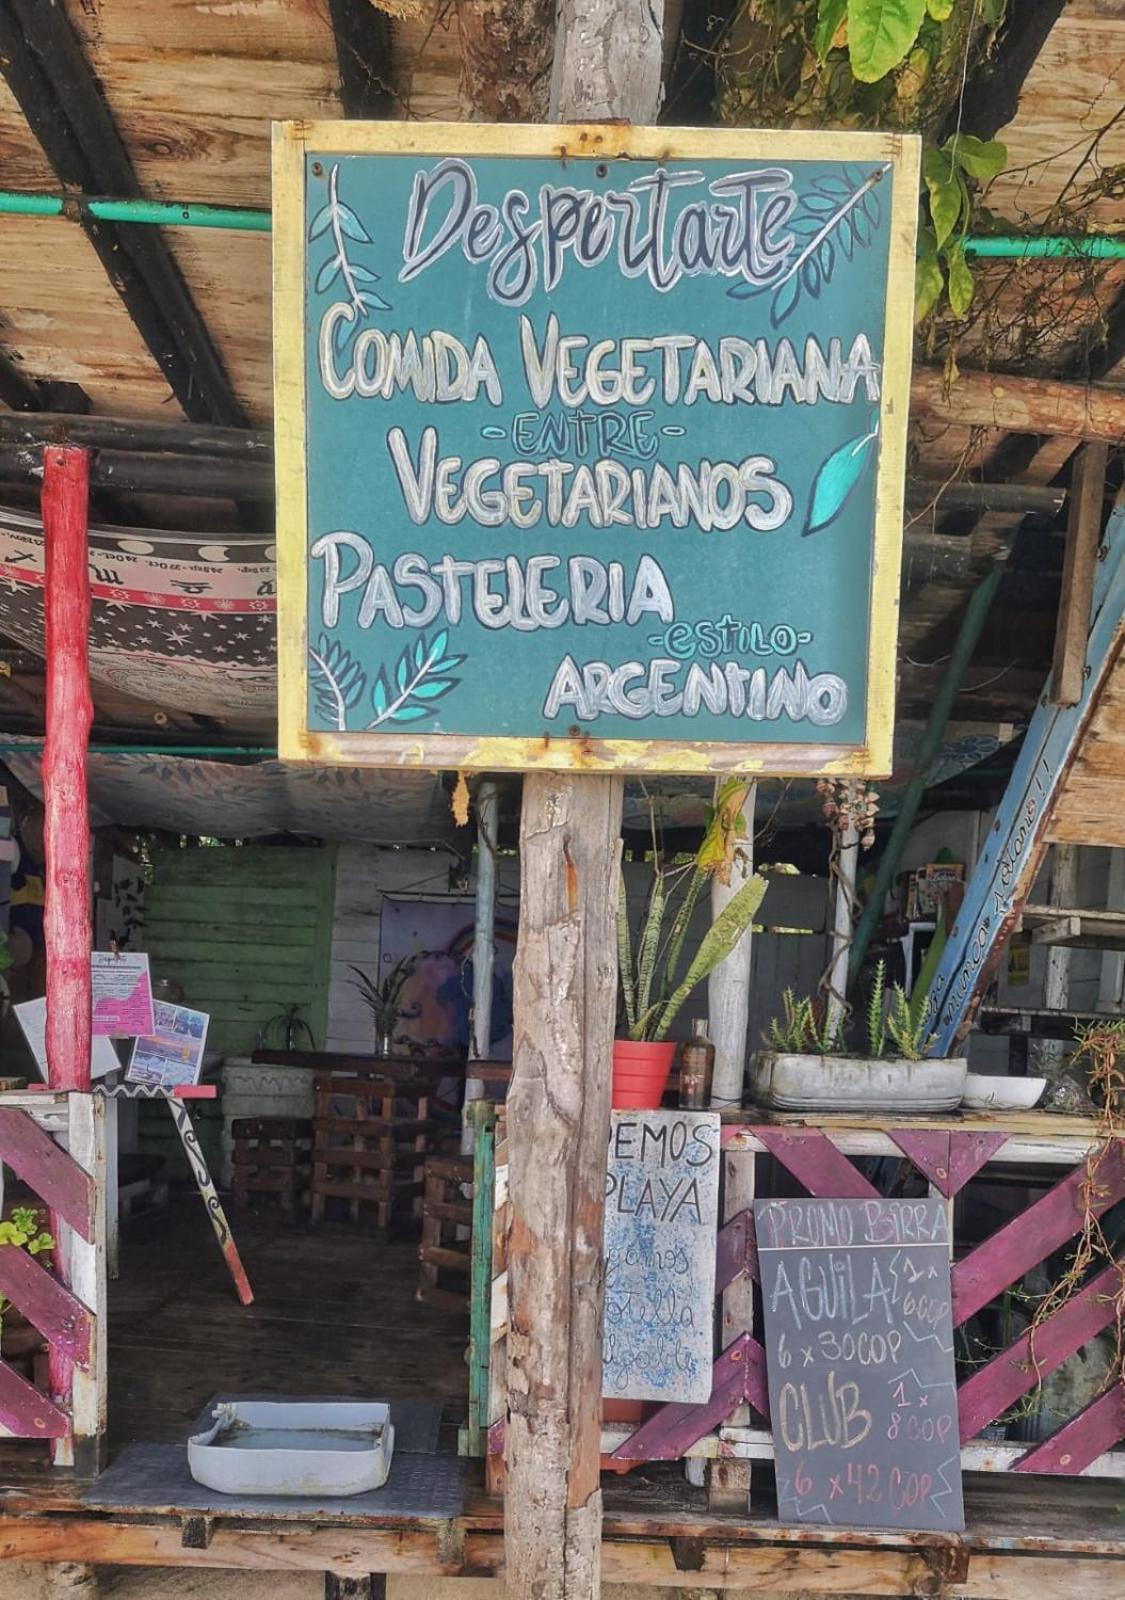 Despertarte
COMIDA VEGETARIANA
-ENTRE-
VEGETARIANOS
PASTELERIA
-ESTILO-
ARGENTINO
EMOS
PLAYA
PROMO BIRRA
AGUILA 1x
6COP
6 x 30COP
CLUB 1x
8COP
6 x 42 COP